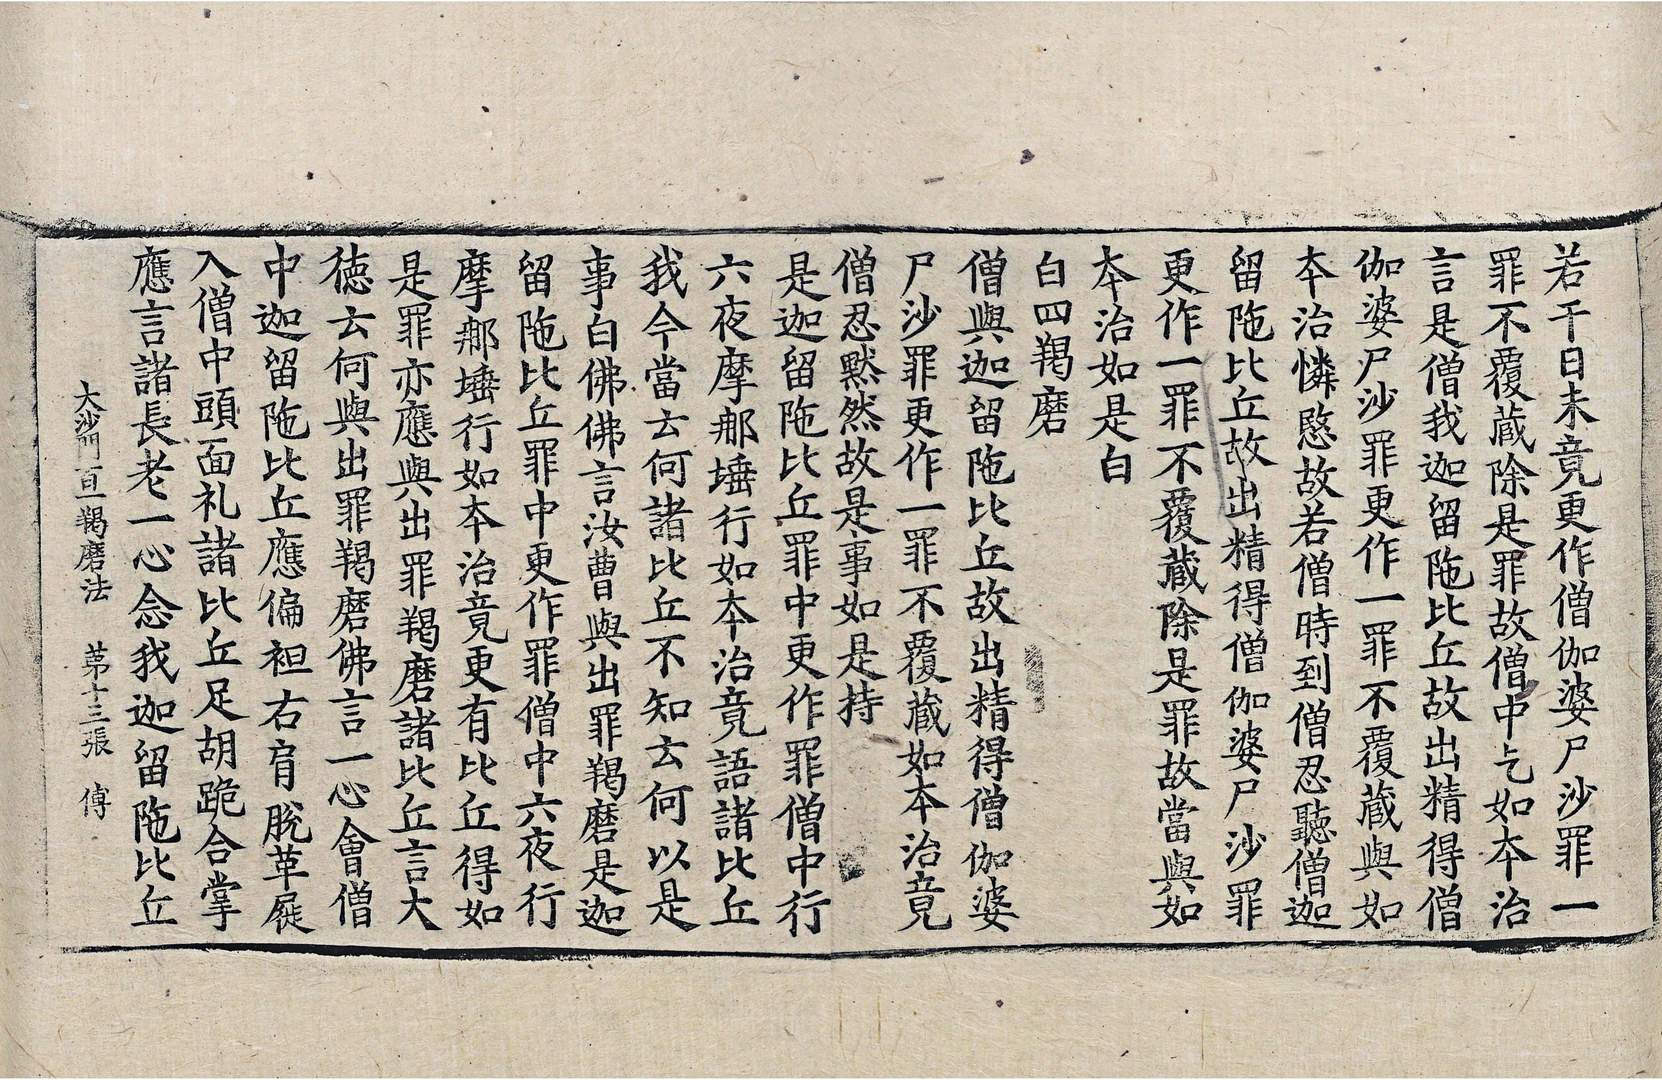 若干日未竟更作僧伽婆尸沙罪一
罪不覆藏除是罪故僧中乞如本治
言是僧我迦留陁比丘故出精得僧
伽婆尸沙罪更作一罪不覆藏與如
本治憐愍故若僧時到僧忍聽僧迦
留陁比丘故出精得僧伽婆尸沙罪
更作一罪不覆藏除是罪故當與如
本治如是白
白四羯磨
僧與迦留陁比丘故出精得僧伽婆
尸沙罪更作一罪不覆藏如本治竟
僧忍黙然故是事如是持
是迦留陁比丘罪中更作罪僧中行
六夜摩那埵行如本治竟語諸比丘
我今當云何諸比丘不知云何以是
事白佛佛言汝曹與出罪羯磨是迦
留陁比丘罪中更作罪僧中六夜行
摩那埵行如本治竟更有比丘得如
是罪亦應與出罪羯磨諸比丘言大
徳云何與出罪羯磨佛言一心會僧
中迦留陁比丘應偏袒右肩脫革屣
入僧中頭面礼諸比丘足胡跪合掌
應言諸長老一心念我迦留陁比丘
大沙門百一羯磨法 苐十三張 傅